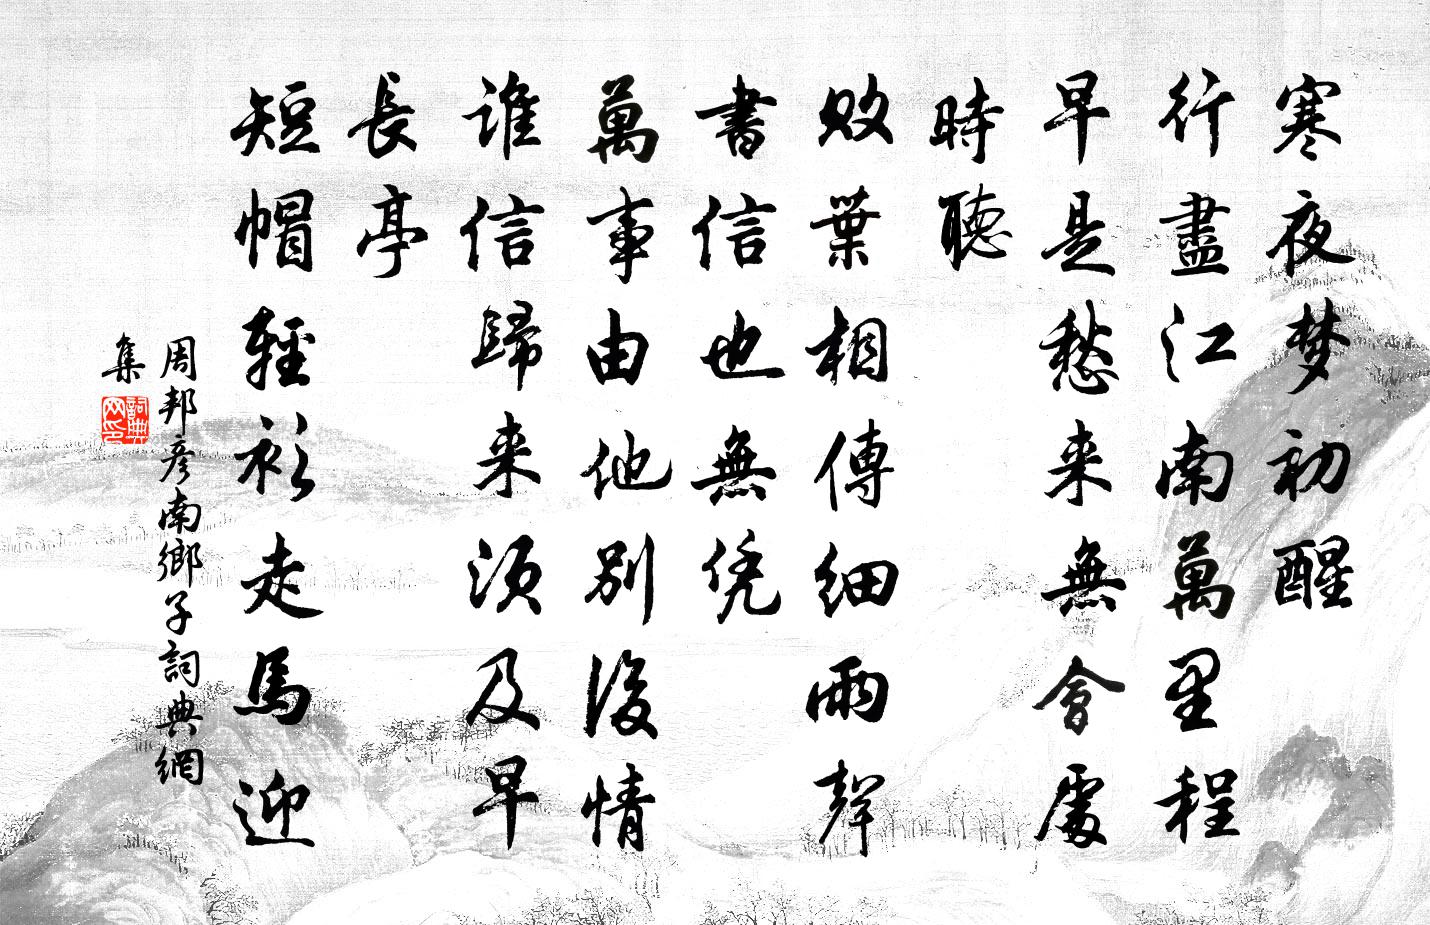 寒夜梦初醒
行盡江南萬里程
早是愁来無會處
時聽
敗葉相傳細雨聲
書信也無凭
萬事由他别後情
誰信歸来須及早
長亭
短帽輕衫走馬迎
周邦彦南鄉子詞典網
集
詞典网印